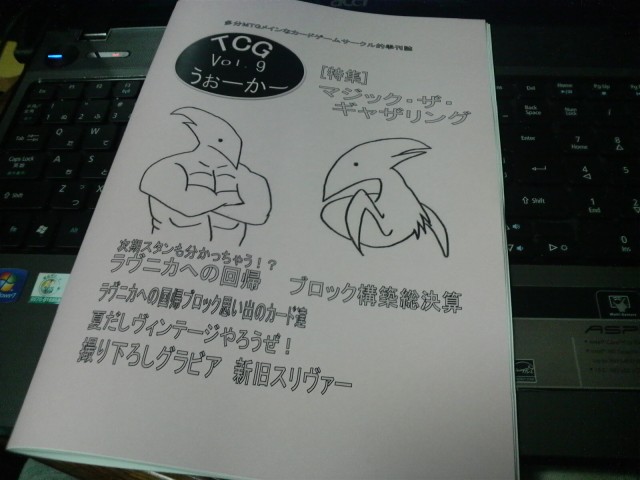 多分MTGメインなカードゲームサークル的季刊誌
TCG
Vol.9
うぉーかー
[特集]
マジック・ザ・
ギャザリング
次期スタンも分かっちゃう！？
ラヴニカへの回帰 ブロック構築総決算
ラヴニカへの回帰ブロック思い出のカード達
夏だしヴィンテージやろうぜ！
撮り下ろしグラビア 新旧スリヴァー